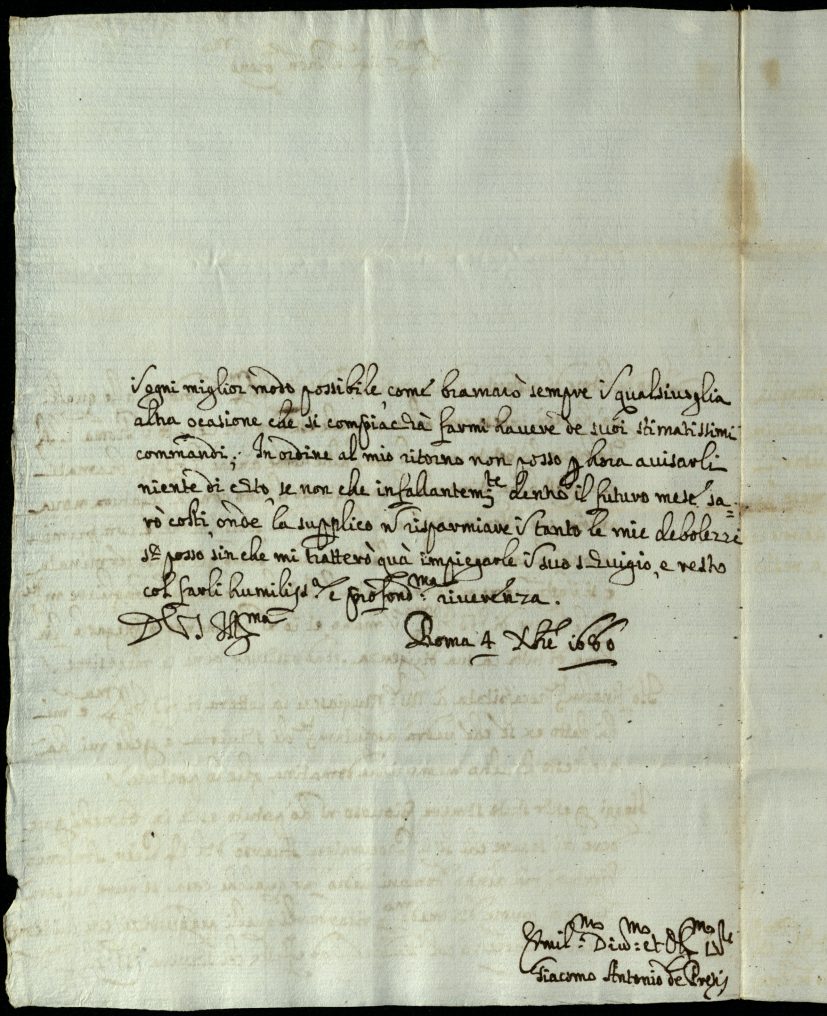 in ogni miglior modo possibile, come bramarò sempre in qualsivoglia
altra ocasione che si compiacerà farmi havere de suoi stimatissimi
commandi; In ordine al mio ritorno non posso p hora avisarli
niente di certo, se non che infallantem.te dentro il futuro mese sa=
rò costì, onde la supplico n risparmiare in tanto le mie debolezze
se posso, sin che mi tratterò quà impiegarle in suo servigio, e resto
col farli humiliss.a e profond.ma riverenza.
Di V.S. Ill.ma Roma 4 Xbre 1680
Humil.mo Div.mo et Obl.mo
Giacomo Antonio de Pretis